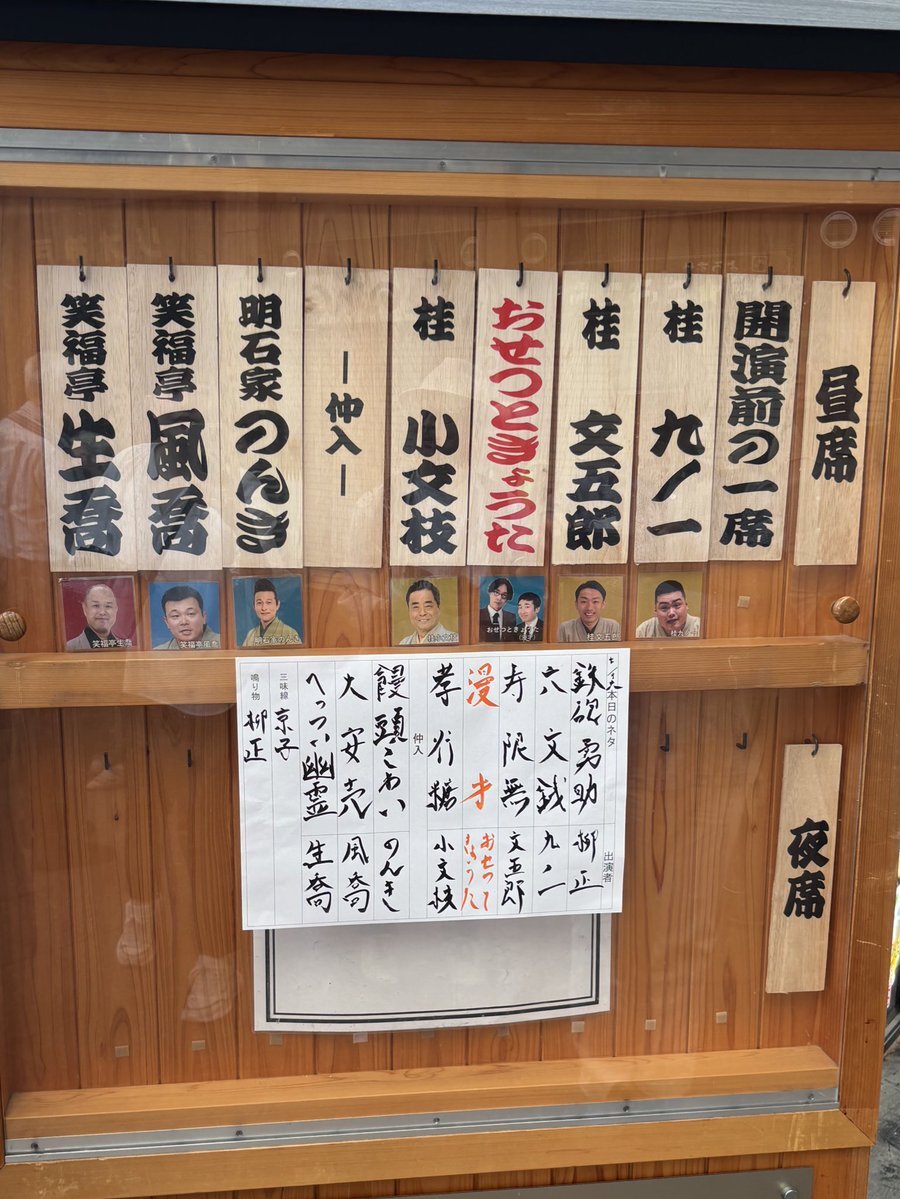 昼席
開演前の一席
桂 九ノ一
桂 文五郎
おせつときょうた
桂 小文枝
ー仲入ー
明石家のんき
笑福亭 風喬
笑福亭 生喬
笑福亭生喬
笑福亭風喬
明石家のんき
桂小文枝
おせつときょうた
(漫才)
桂文五郎
桂九ノ一
本日のネタ 出演者
鉄砲勇助 柳正
六文銭 九ノ一
寿限無 文五郎
漫才 おせつときょうた
孝行糖 小文枝
仲入
饅頭こわい のんき
大安売 風喬
へっつい幽霊 生喬
三味線 京子
鳴り物 柳正
夜席